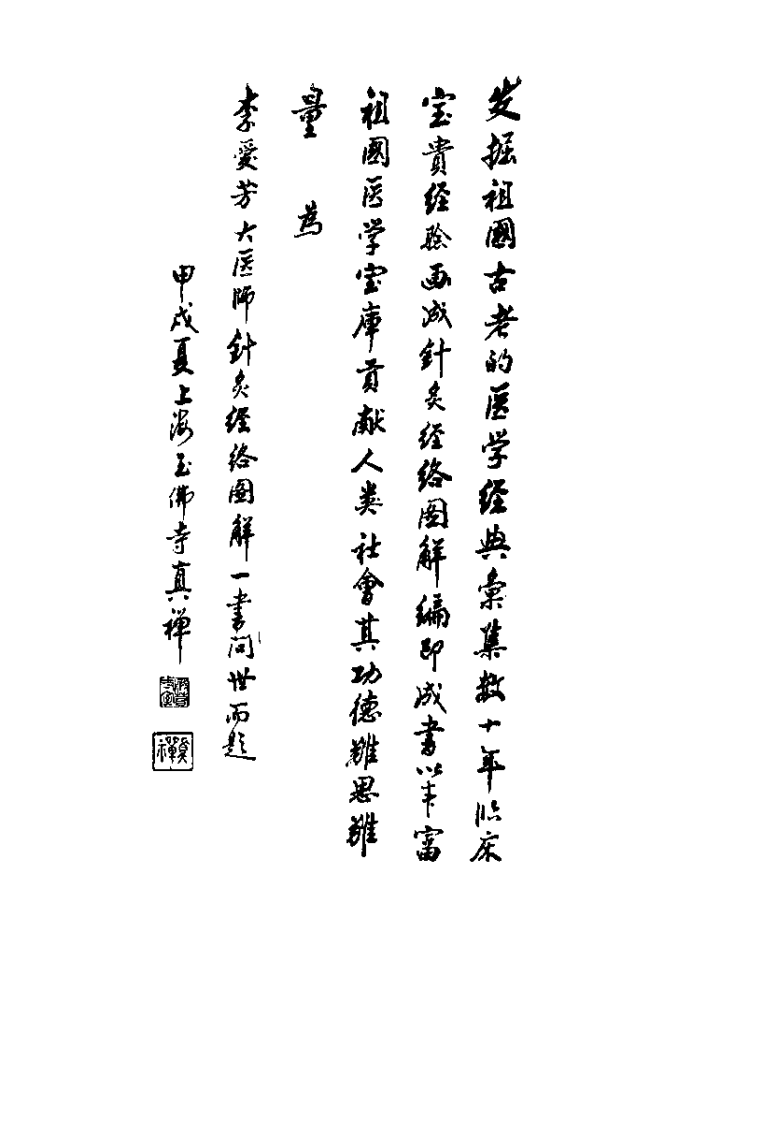 发掘祖國古老的医学経典彙集数十年临床
宝貴经验画成針灸经络图解編印成書以丰富
祖國医学宝庫貢献人类社會其功德難思難
量 為
李愛芳大医師針灸经络图解一書问世而题
甲戌夏上海玉佛寺真禅
真禪